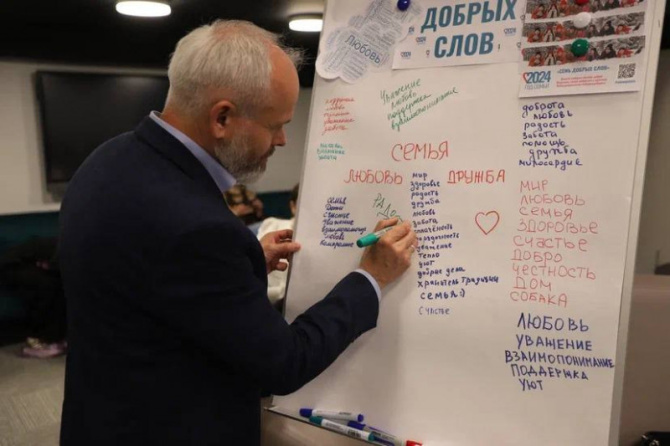 ДОБРЫХ
СЛОВ
Любовь
2024
«СЕМЬ ДОБРЫХ СЛОВ»
Уважение
любовь
поддержка
взаимопонимание
доброта
любовь
радость
забота
помощь
дружба
милосердие
СЕМЬЯ
ЛЮБОВЬ
ДРУЖБА
мир
здоровье
радость
дружба
любовь
забота
уважение
тепло
уют
добрые дела
хранитель традиций
семья
Счастье
семья
уважение
взаимопомощь
любовь
МИР
ЛЮБОВЬ
СЕМЬЯ
ЗДОРОВЬЕ
СЧАСТЬЕ
ДОБРО
ЧЕСТНОСТЬ
ДОМ
СОБАКА
ЛЮБОВЬ
УВАЖЕНИЕ
ВЗАИМОПОНИМАНИЕ
ПОДДЕРЖКА
УЮТ